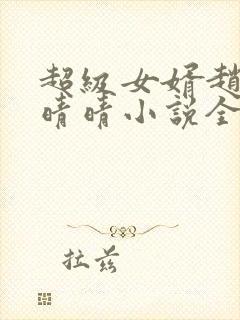 超級女婿趙
晴晴小說全
拉茲